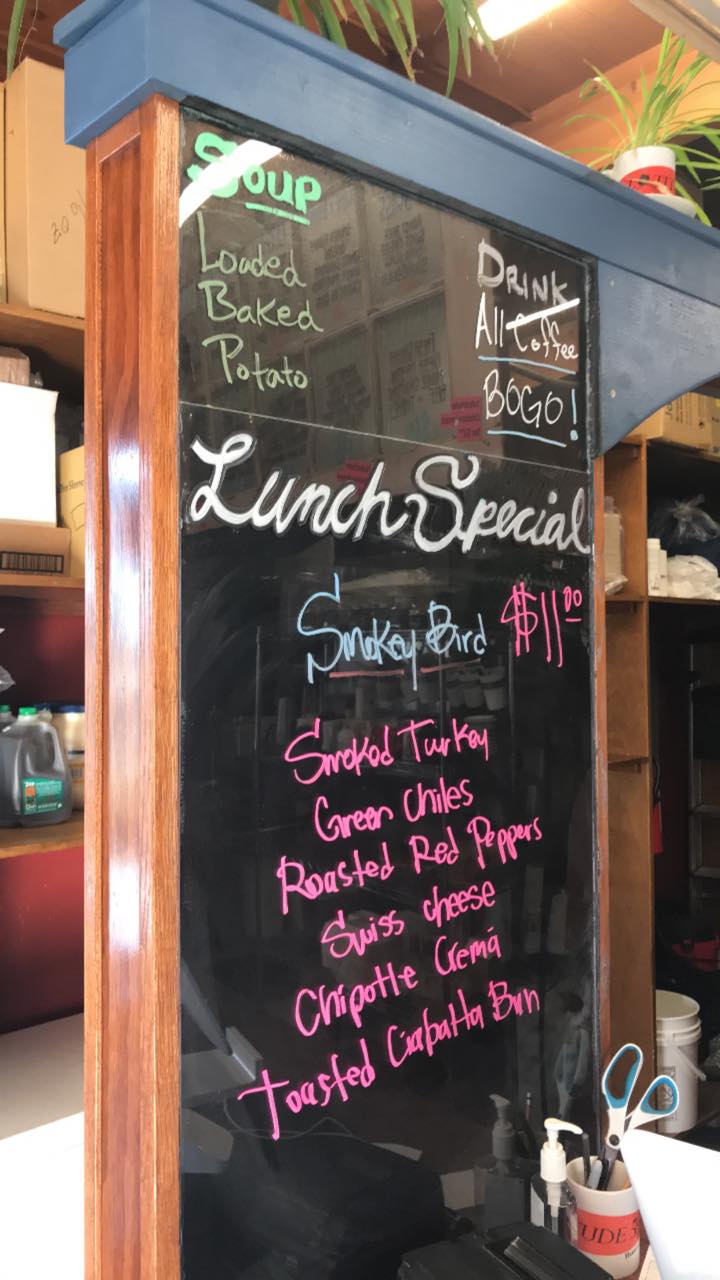 Soup
Loaded
Baked
Potato
DRINK
All Coffee
BOGO!
Lunch Special
Smokey Bird $11.00
Smoked Turkey
Green Chiles
Roasted Red Peppers
Swiss cheese
Chipotle Cremá
Toasted Ciabatta Bun
TUDE